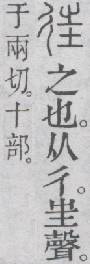 往 之也。从彳㞷聲。
于兩切。十部。